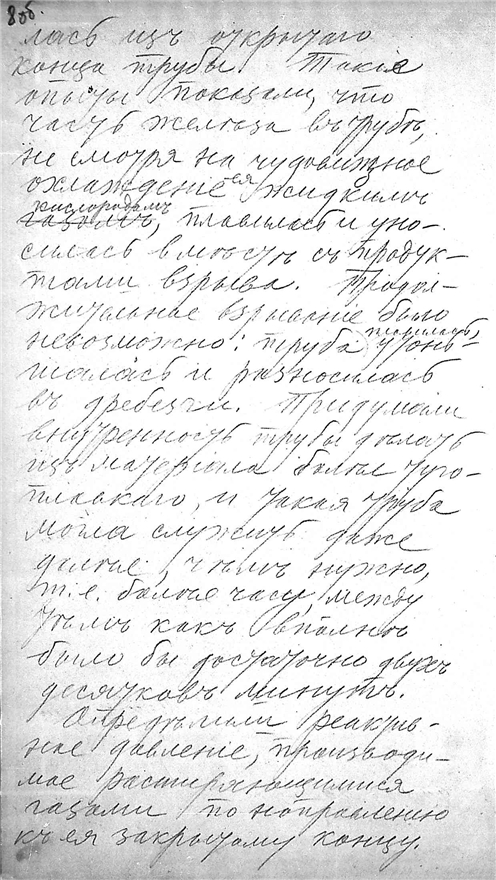 8 об.
лась изъ открытаго
конца трубы. Такіе
опыты показали, что
часть железа въ трубѣ,
не смотря на чудовищное
охлажденіе ея жидкимъ
кислородомъ
газомъ, плавилась и уно-
силась вмѣстѣ съ продук-
тами взрыва. Продол-
жительное взрываніе было
невозможно: труба плавилась, утонь-
шалась и разносилась
въ дребезги. Придумали
внутренность трубы дѣлать
изъ матеріала более туго-
плавкаго, и такая труба
могла служить даже
долѣе, чѣмъ нужно,
т.е. более часу, между
тѣмъ какъ вполнѣ
было бы достаточно двухъ
десятковъ минутъ.
Опредѣлили реактив-
ное давленіе, производи-
мое расширяющимися
газами по направленію
къ ея закрытому концу.